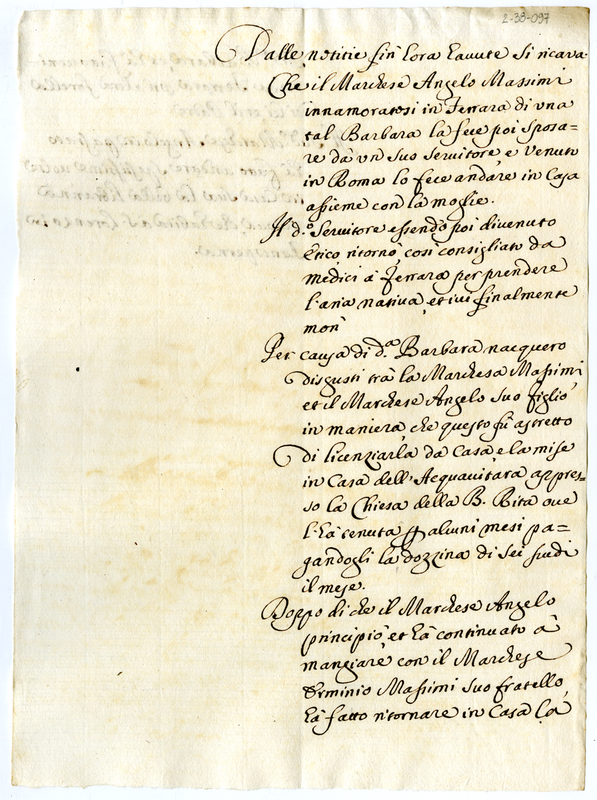 2-38-097
Dalle notitie sin'hora havute si ricava
Che il Marchese Angelo Massimi
innamoratosi in Ferrara di una
tal Barbara la fece poi sposa=
re da un suo servitore e venuto
in Roma lo fece andare in Casa
assieme con la moglie.
Il d.o Servitore essendo poi divenuto
Etico ritornò così consigliato da
medici à Ferrara per prendere
l'aria nativa, et ivi finalmente
morì
Per causa di d.a Barbara nacquero
disgusti trà la Marchesa Massimi
et il Marchese Angelo suo figlio
in maniera, che questo fù astretto
di licenziarla da Casa, e la mise
in Casa dell'Acquavitara appres=
so la Chiesa della B. Rita ove
l'hà tenuta alcuni mesi pa=
gandogli la dozzina di sei scudi
il mese.
Doppo di che il Marchese Angelo
principiò et hà continuato à
mangiare con il Marchese
Erminio Massimi suo fratello,
hà fatto ritornare in Casa la